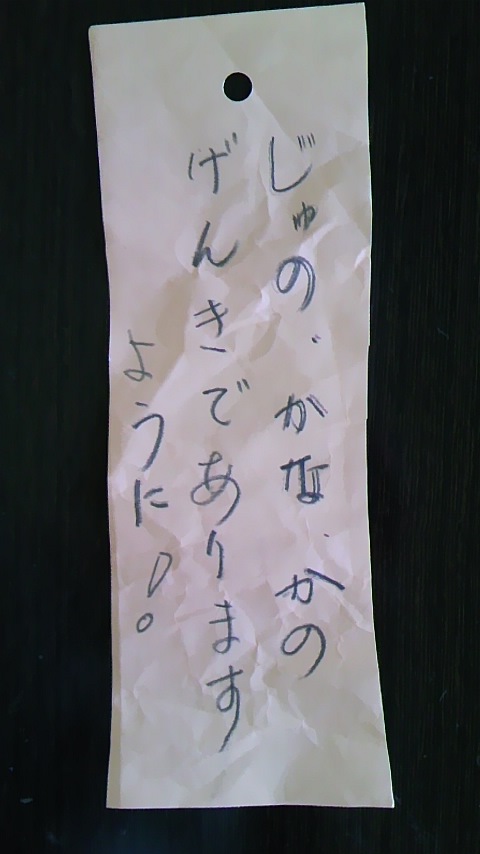 じゅの、かな、かの
げんきであります
ように!